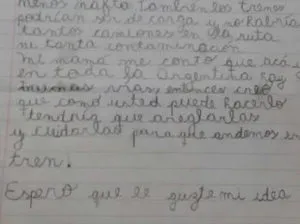 menos nafta tambien los trenes
podrian ser de carga y no habria
tantos camiones en la ruta
ni tanta contaminación
mi mama me conto que acá
en toda la argentita hay
vias, entonces creo
que como usted puede hacerlo
tendria que areglarlas
y cuidarlas para que andemos en
tren.
Espero que le guzte mi idea